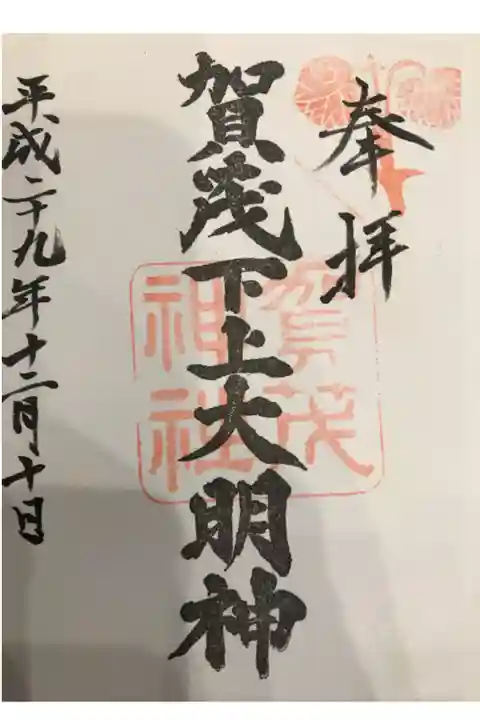 奉拝
賀茂下上大明神
賀茂
神社
平成二十九年十二月十日